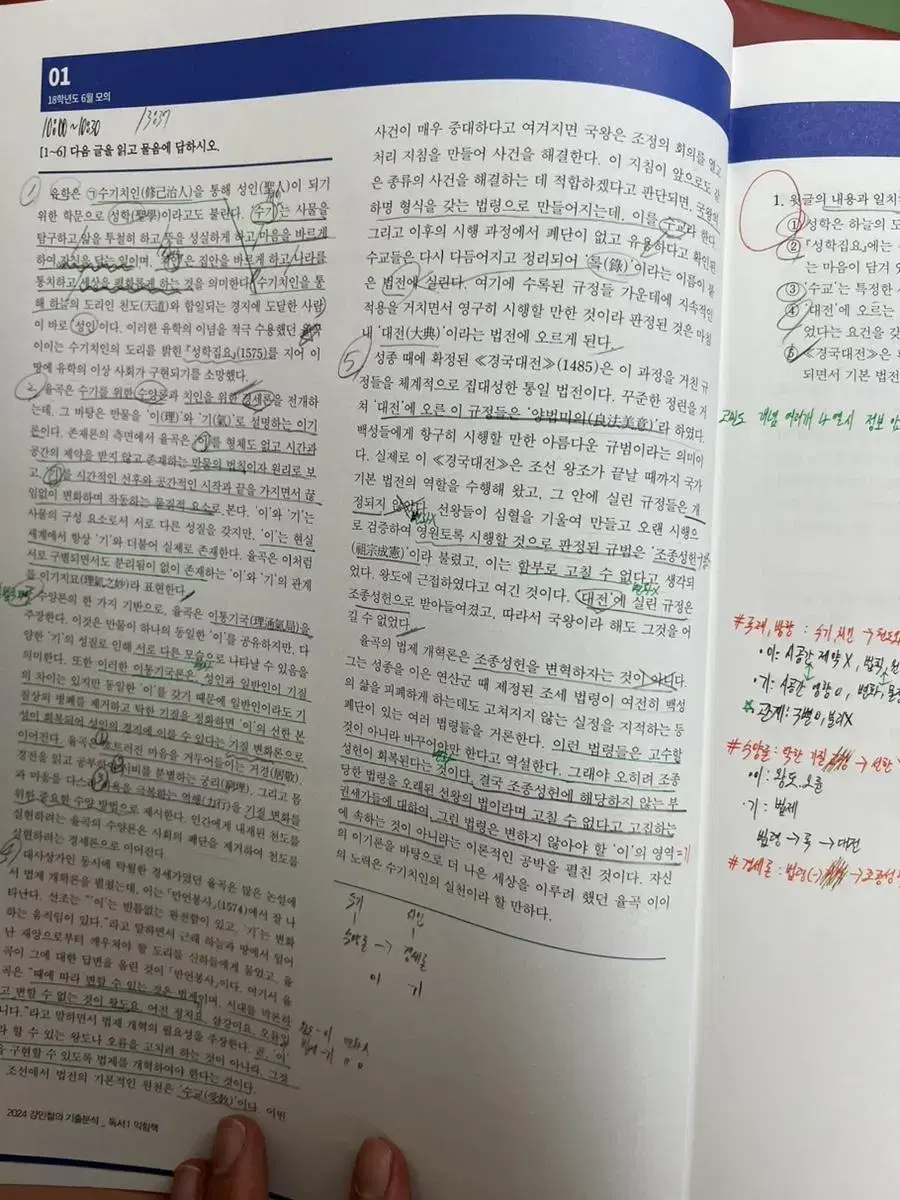 01
18학년도 6월 모의
10:00~10:30 13:37
[1~6] 다음 글을 읽고 물음에 답하시오.
1
유학은 ㉠수기치인(修己治人)을 통해 성인(聖人)이 되기
위한 학문으로 성학(聖學)이라고도 불린다. '수기'는 사물을
탐구하고 앎을 투철히 하고 뜻을 성실하게 하고 마음을 바르게
하여 자신을 닦는 일이며, '치인'은 집안을 바르게 하고 나라를
통치하고 세상을 평화롭게 하는 것을 의미한다. 수기치인을 통
해 하늘의 도리인 천도(天道)와 합일되는 경지에 도달한 사람
이 바로 성인이다. 이러한 유학의 이념을 적극 수용했던 율곡
이이는 수기치인의 도리를 밝힌 『성학집요』(1575)를 지어 이
땅에 유학의 이상 사회가 구현되기를 소망했다.
2
율곡은 수기를 위한 수양론과 치인을 위한 경세론을 전개하
는데, 그 바탕은 만물을 '이(理)'와 '기(氣)'로 설명하는 이기
론이다. 존재론의 측면에서 율곡은 '이'를 형체도 없고 시간과
공간의 제약을 받지 않고 존재하는 만물의 법칙이자 원리로 보
고, '기'를 시간적인 선후와 공간적인 시작과 끝을 가지면서 끊
임없이 변화하며 작동하는 물질적 요소로 본다. '이'와 '기'는
사물의 구성 요소로서 서로 다른 성질을 갖지만, '이'는 현실
세계에서 항상 '기'와 더불어 실제로 존재한다. 율곡은 이처럼
서로 구별되면서도 분리됨이 없이 존재하는 '이'와 '기'의 관계
를 이기지묘(理氣之妙)라 표현한다.
수양론의 한 가지 기반으로, 율곡은 이통기국(理通氣局)을
주장한다. 이것은 만물이 하나의 동일한 '이'를 공유하지만, 다
양한 '기'의 성질로 인해 서로 다른 모습으로 나타날 수 있음을
의미한다. 또한 이러한 이통기국론은, 성인과 일반인이 기질
의 차이는 있지만 동일한 '이'를 갖기 때문에 일반인이라도 기
질상의 병폐를 제거하고 탁한 기질을 정화하면 '이'의 선한 본
성이 회복되어 성인의 경지에 이를 수 있다는 기질 변화론으로
이어진다. 율곡은 흐트러진 마음을 거두어들이는 거경(居敬),
경전을 읽고 공부하여 시비를 분별하는 궁리(窮理), 그리고 몸
과 마음을 다스려 사욕을 극복하는 역행(力行)을 기질 변화를
위한 중요한 수양 방법으로 제시한다. 인간에게 내재된 천도를
실현하려는 율곡의 수양론은 사회의 폐단을 제거하여 천도를
실현하려는 경세론으로 이어진다.
4
대사상가인 동시에 탁월한 경세가였던 율곡은 많은 논설에
서 법제 개혁론을 펼쳤는데, 이는 「만언봉사」(1574)에서 잘 나
타난다. 선조는 "'이'는 빈틈없는 완전함이 있고, '기'는 변화
하는 움직임이 있다."라고 말하면서 근래 하늘과 땅에서 일어
난 재앙으로부터 깨우쳐야 할 도리를 신하들에게 물었고, 율
곡이 그에 대한 답변을 올린 것이 「만언봉사」이다. 여기서 율
곡은 "때에 따라 변할 수 있는 것은 법제이며, 시대를 막론하
고 변할 수 없는 것이 왕도요, 어진 정치요, 삼강이요, 오륜입
니다."라고 말하면서 법제 개혁의 필요성을 주장한다. 곧, '이'
라 할 수 있는 왕도나 오륜을 고치려 하는 것이 아니라, 그것
을 구현할 수 있도록 법제를 개혁하여야 한다는 것이다.
조선에서 법전의 기본적인 원천은 '수교(受敎)'이다. 어떤
2024 강민철의 기출분석 _ 독서1 익힘책
사건이 매우 중대하다고 여겨지면 국왕은 조정의 회의를 열고
처리 지침을 만들어 사건을 해결한다. 이 지침이 앞으로도 같
은 종류의 사건을 해결하는 데 적합하겠다고 판단되면, 국왕의
하명 형식을 갖는 법령으로 만들어지는데, 이를 수교라 한다.
그리고 이후의 시행 과정에서 폐단이 없고 유용하다고 확인된
수교들은 다시 다듬어지고 정리되어 '록(錄)'이라는 이름이 붙
은 법전에 실린다. 여기에 수록된 규정들 가운데에 지속적인
적용을 거치면서 영구히 시행할 만한 것이라 판정된 것은 마침
내 '대전(大典)'이라는 법전에 오르게 된다.
5
성종 때에 확정된 《경국대전》(1485)은 이 과정을 거친 규
정들을 체계적으로 집대성한 통일 법전이다. 꾸준한 정련을 거
쳐 '대전'에 오른 이 규정들은 '양법미의(良法美意)'라 하였다.
백성들에게 항구히 시행할 만한 아름다운 규범이라는 의미이
다. 실제로 이 《경국대전》은 조선 왕조가 끝날 때까지 국가
기본 법전의 역할을 수행해 왔고, 그 안에 실린 규정들은 개
정되지 않았다. 선왕들이 심혈을 기울여 만들고 오랜 시행으
로 검증하여 영원토록 시행할 것으로 판정된 규범은 '조종성헌
(祖宗成憲)'이라 불렸고, 이는 함부로 고칠 수 없다고 생각되
었다. 왕도에 근접하였다고 여긴 것이다. '대전'에 실린 규정은
조종성헌으로 받아들여졌고, 따라서 국왕이라 해도 그것을 어
길 수 없었다.
율곡의 법제 개혁론은 조종성헌을 변혁하자는 것이 아니다.
그는 성종을 이은 연산군 때 제정된 조세 법령이 여전히 백성
의 삶을 피폐하게 하는데도 고쳐지지 않는 실정을 지적하는 등
폐단이 있는 여러 법령들을 거론한다. 이런 법령들은 고수할
것이 아니라 바꾸어야만 한다고 역설한다. 그래야 오히려 조종
성헌이 회복된다는 것이다. 결국 조종성헌에 해당하지 않는 부
당한 법령을 오래된 선왕의 법이라며 고칠 수 없다고 고집하는
권세가들에 대하여, 그런 법령은 변하지 않아야 할 '이'의 영역 =기
에 속하는 것이 아니라는 이론적인 공박을 펼친 것이다. 자신
의 이기론을 바탕으로 더 나은 세상을 이루려 했던 율곡 이이
의 노력은 수기치인의 실천이라 할 만하다.
수기 치인
수양론 → 경세론
이 기
1. 윗글의 내용과 일치하
① 성학은 하늘의 도
② 『성학집요』에는
는 마음이 담겨
③ '수교'는 특정한
④ '대전'에 오르는
었다는 요건을 갖
⑤ 《경국대전》은
되면서 기본 법전
이: 시공간 제약X, 법칙, 원
기: 시공간 영향O, 변화, 물질
관계: 구별O, 분리X
#수양론: 탁한 기질 → 선한
이: 왕도, 오륜
기: 법제
법령 → 록 → 대전
#경세론: 법령(-) → 조종성헌